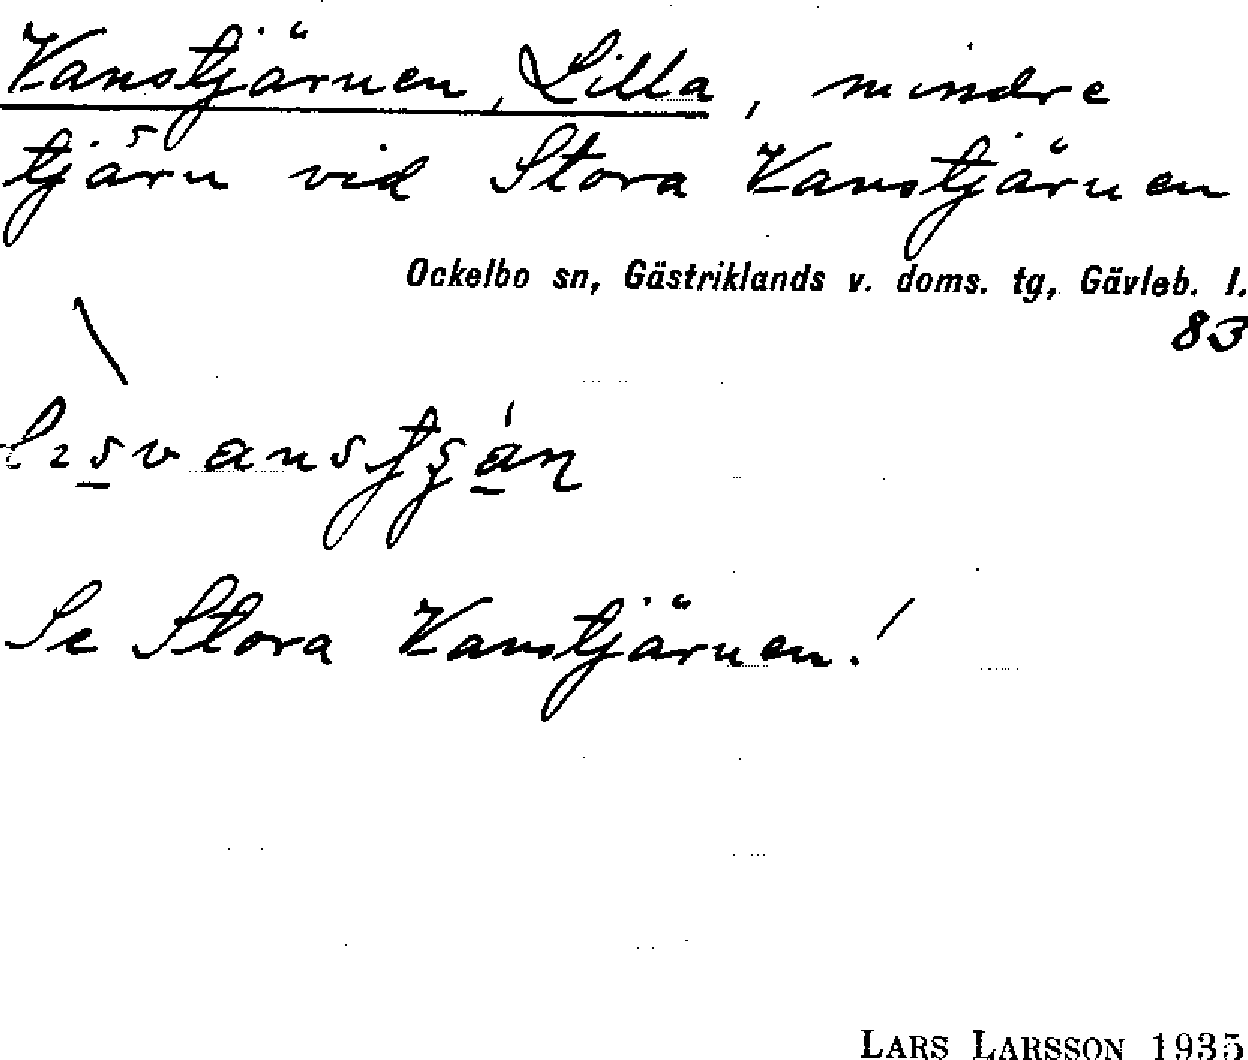 Vanstjärnen, Lilla, mindre
tjärn vid Stora Vanstjärnen
Ockelbo sn, Gästriklands v. doms. tg, Gävleb. l.
83
Se Stora Vanstjärnen!
LARS LARSSON 1935